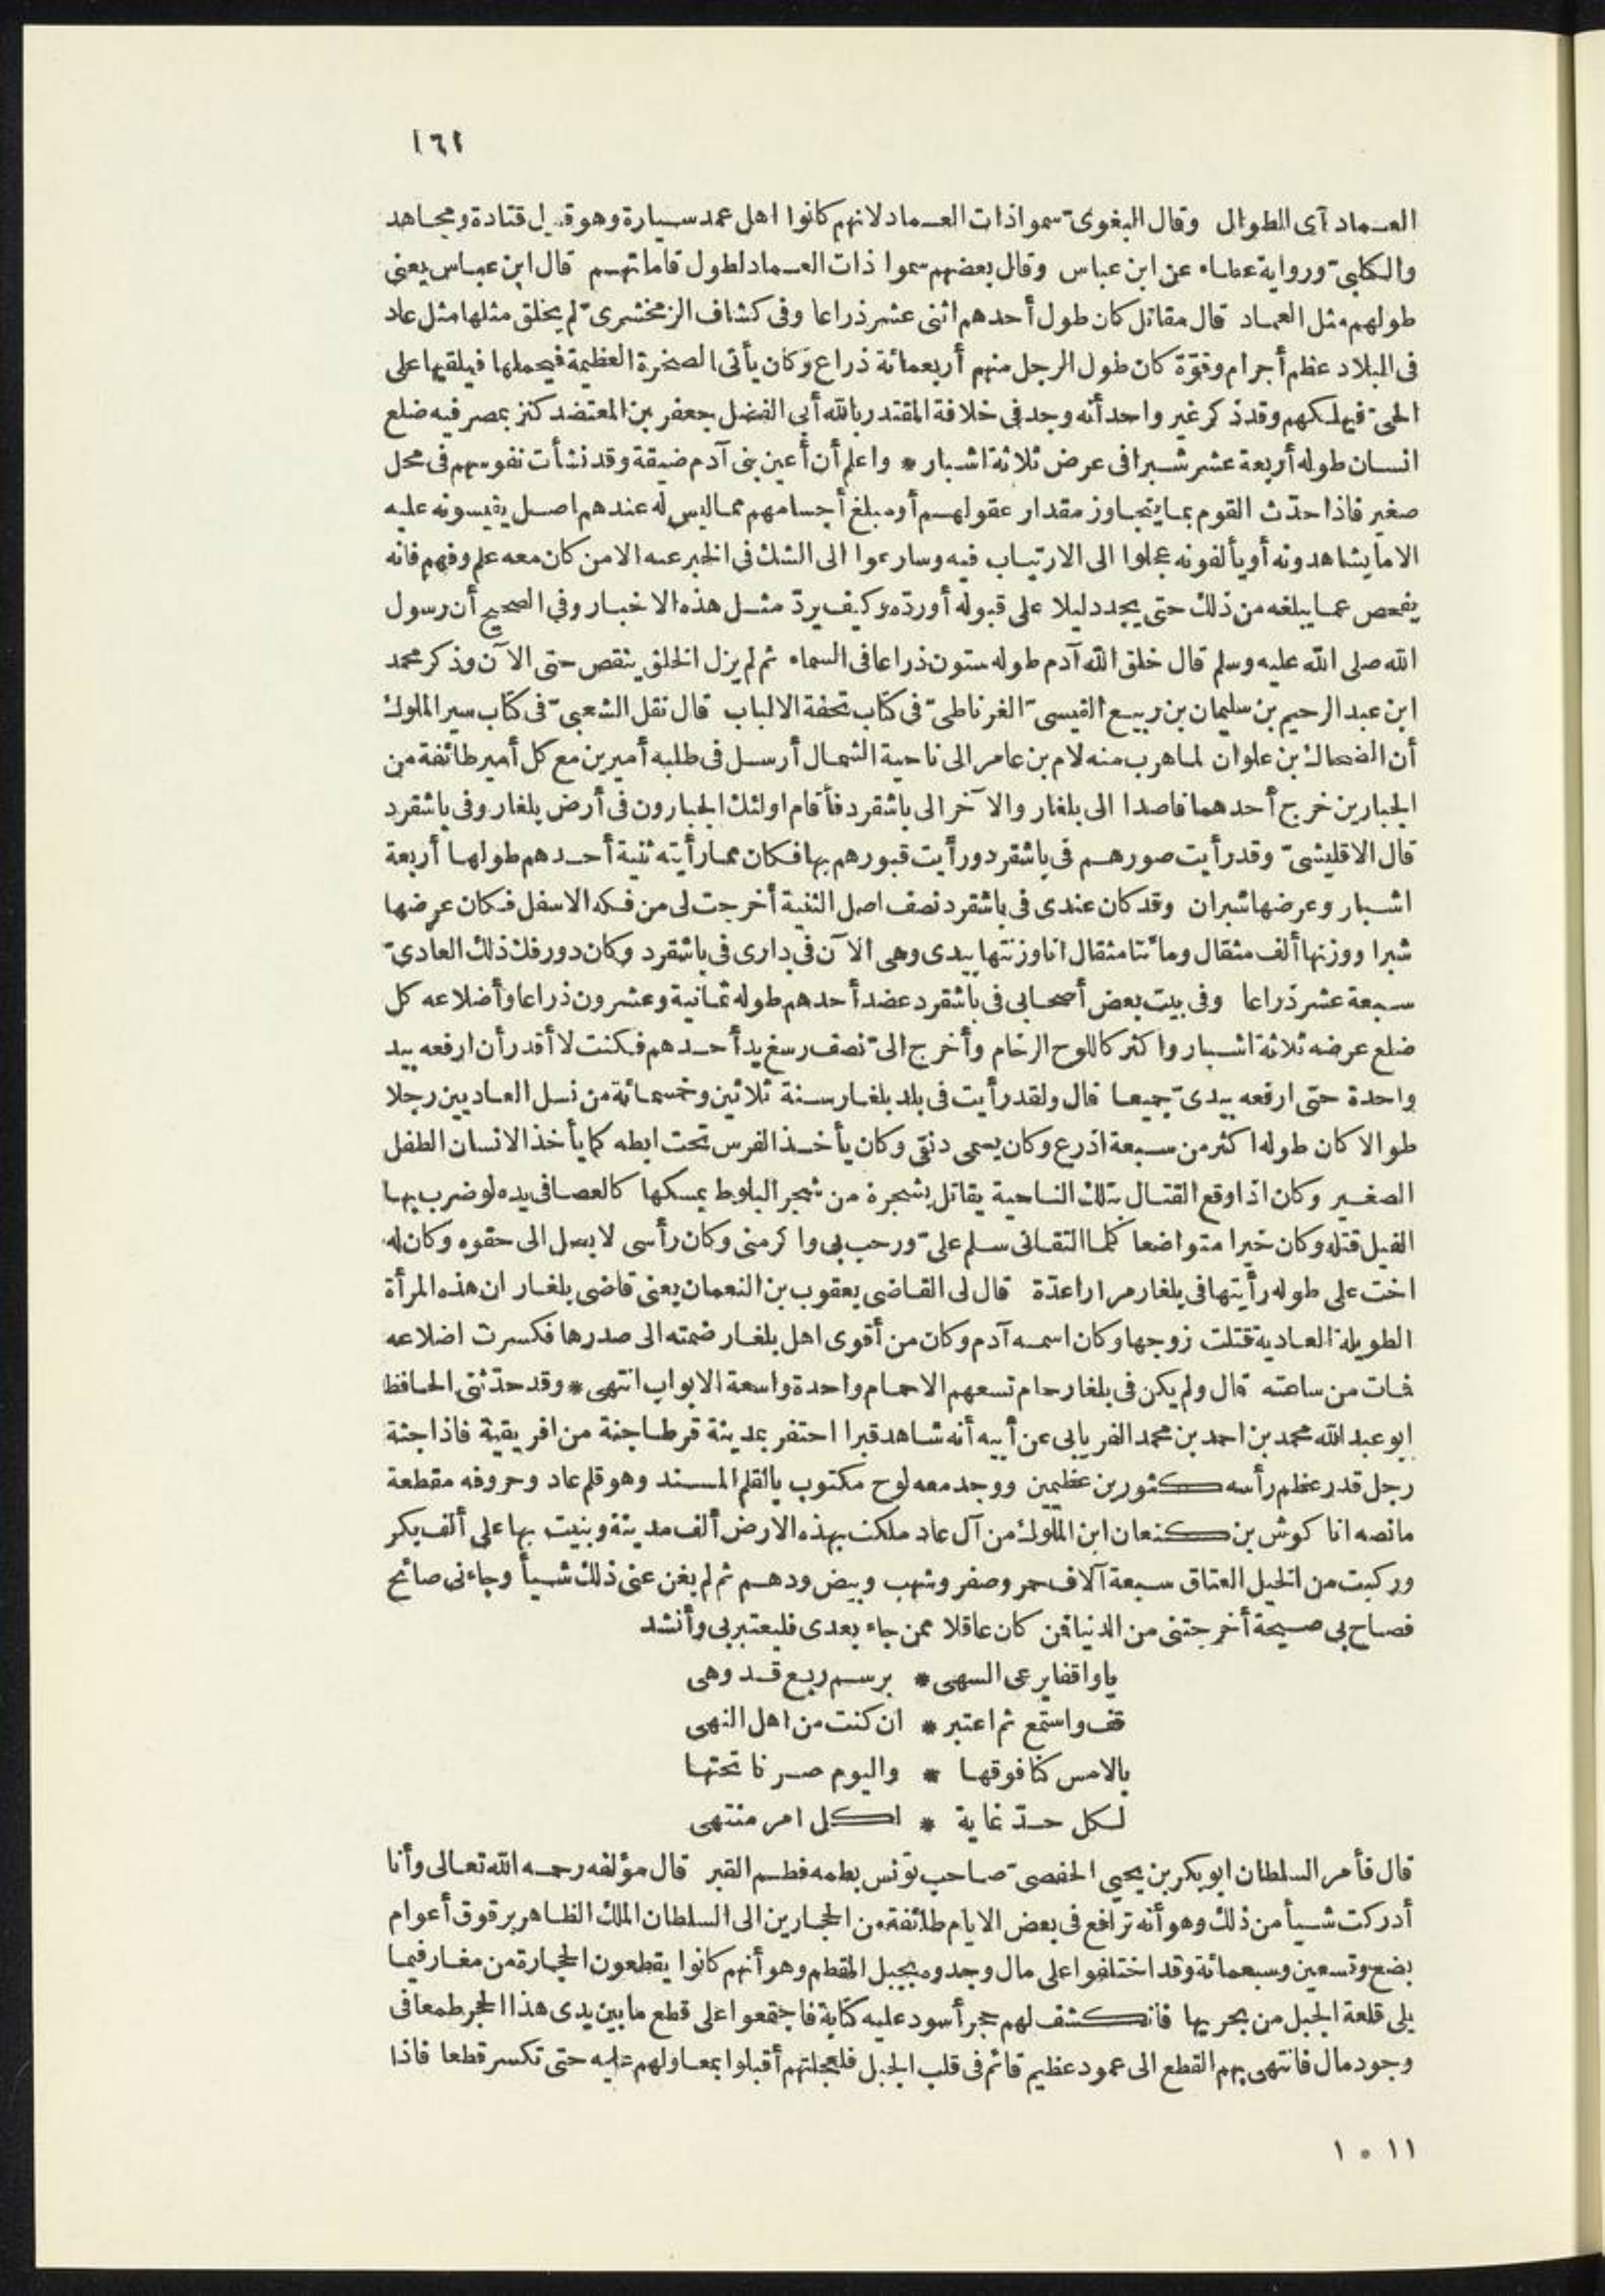 ١٦١
العماد آى الطوال وقال البغوىّ سمواذات العماد لانهم كانوا اهل عمد سيارة وهو قول قتادة ومجاهد
والكلبىّ ورواية عطاء عن ابن عباس وقال بعضهم سموا ذات العماد لطول قاماتهم قال ابن عباس يعنى
طولهم مثل العماد قال مقاتل كان طول أحدهم اثنى عشر ذراعا وفى كشاف الزمخشرىّ لم يخلق مثلها مثل عاد
فى البلاد عظم أجرام وقوّة كان طول الرجل منهم أربعمائة ذراع وكان يأتى الصخرة العظيمة فيحملها فيلقيها على
الحىّ فيهلكهم وقد ذكر غير واحد أنه وجد فى خلافة المقتدر بالله أبى الفضل جعفر بن المعتضد كنز بمصر فيه ضلع
انسان طوله أربعة عشر شبرا فى عرض ثلاثة اشبار * واعلم أن أعين بنى آدم ضيقة وقد نشأت نفوسهم فى محل
صغير فاذا حدّث القوم بما يتجاوز مقدار عقولهم أو مبلغ أجسامهم مماليس له عندهم اصل يقيسونه عليه
الاما يشاهدونه أو يألفونه عجلوا الى الارتياب فيه وسارعوا الى الشك فى الخبر عنه الامن كان معه علم وفهم فانه
يفحص عما يبلغه من ذلك حتى يجد دليلا على قبوله أوردّه وكيف يردّ مثل هذه الاخبار وفى الصحيح أن رسول
الله صلى الله عليه وسلم قال خلق الله آدم طوله ستون ذراعا فى السماء ثم لم يزل الخلق ينقص حتى الآن وذكر محمد
ابن عبد الرحيم بن سليمان بن ربيع القيسىّ الغرناطىّ فى كتاب تحفة الالباب قال نقل الشعبىّ فى كتاب سير الملوك
أن الضحاك بن علوان لما هرب منه لام بن عامر الى ناحية الشمال أرسل فى طلبه أميرين مع كل أمير طائفة من
الجبارين خرج أحدهما قاصدا الى بلغار والآخر الى باشقرد فأقام اولئك الجبارون فى أرض بلغار وفى باشقرد
قال الاقليشىّ وقد رأيت صورهم فى باشقرد ورأيت قبورهم بها فكان مما رأيته ثنية أحدهم طولها أربعة
اشبار وعرضها شبران وقد كان عندى فى باشقرد نصف اصل الثنية أخرجت لى من فكه الاسفل فكان عرضها
شبرا ووزنها ألف مثقال ومائتا مثقال انا وزنتها بيدى وهى الآن فى دارى فى باشقرد وكان دور فك ذلك العادىّ
سبعة عشر ذراعا وفى بيت بعض أصحابى فى باشقرد عضد أحدهم طوله ثمانية وعشرون ذراعا وأضلاعه كل
ضلع عرضه ثلاثة اشبار واكثر كاللوح الرخام وأخرج الىّ نصف رسغ يد أحدهم فكنت لا أقدر أن ارفعه بيد
واحدة حتى ارفعه بيدىّ جميعا قال ولقد رأيت فى بلد بلغار سنة ثلاثين وخمسمائة من نسل العاديين رجلا
طوالا كان طوله اكثر من سبعة اذرع وكان يسمى دنقى وكان يأخذ الفرس تحت ابطه كما يأخذ الانسان الطفل
الصغير وكان اذا وقع القتال بتلك الناحية يقاتل بشجرة من شجر البلوط يمسكها كالعصا فى يده لو ضرب بها
الفيل قتله وكان خيرا متواضعا كلما التقانى سلم علىّ ورحب بى واكرمنى وكان رأسى لا يصل الى حقوه وكان له
اخت على طوله رأيتها فى بلغار مرارا عدّة قال لى القاضى يعقوب بن النعمان يعنى قاضى بلغار ان هذه المرأة
الطويلة العادية قتلت زوجها وكان اسمه آدم وكان من أقوى اهل بلغار ضمته الى صدرها فكسرت اضلاعه
فمات من ساعته قال ولم يكن فى بلغار حمام تسعهم الاحمام واحدة واسعة الابواب انتهى * وقد حدّثنى الحافظ
ابو عبد الله محمد بن احمد بن محمد الفريابى عن أبيه أنه شاهد قبرا احتفر بمدينة قرطاجنة من افريقية فاذا جثة
رجل قدر عظم رأسه كثورين عظيمين ووجد معه لوح مكتوب بالقلم المسند وهو قلم عاد وحروفه مقطعة
مانصه انا كوش بن كنعان ابن الملوك من آل عاد ملكت بهذه الارض ألف مدينة وبنيت بها على ألف بكر
وركبت من الخيل العتاق سبعة آلاف حمر وصفر وشهب وبيض ودهم ثم لم يغن عنى ذلك شيأ وجاءنى صائح
فصاح بى صيحة أخرجتنى من الدنيا فمن كان عاقلا ممن جاء بعدى فليعتبر بى وأنشد
ياواقفا يرعى السهى * برسم ربع قد وهى
قف واستمع ثم اعتبر * ان كنت من اهل النهى
بالامس كنا فوقها * واليوم صرنا تحتها
لكل حدّ غاية * لكل امر منتهى
قال فأمر السلطان ابو بكر بن يحيى الحفصىّ صاحب تونس بطمه فطم القبر قال مؤلفه رحمه الله تعالى وأنا
أدركت شيأ من ذلك وهو أنه ترافع فى بعض الايام طائفة من الحجارين الى السلطان الملك الظاهر برقوق أعوام
بضع وتسعين وسبعمائة وقد اختلفوا على مال وجدوه بجبل المقطم وهو أنهم كانوا يقطعون الحجارة من مغار فيما
يلى قلعة الجبل من بحريها فانكشف لهم حجر أسود عليه كتابة فاجتمعوا على قطع ما بين يدى هذا الحجر طمعا فى
وجود مال فانتهى بهم القطع الى عمود عظيم قائم فى قلب الجبل فلعجلتهم أقبلوا بمعاولهم عليه حتى تكسر قطعا فاذا
١١ ٥ ١